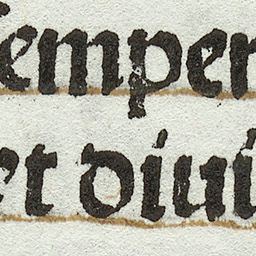 semper
et diui